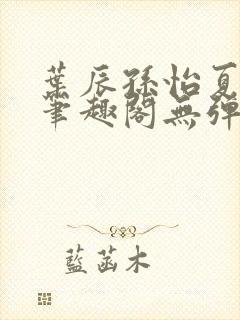 葉辰孫怡夏
筆趣閣無彈
藍菡木